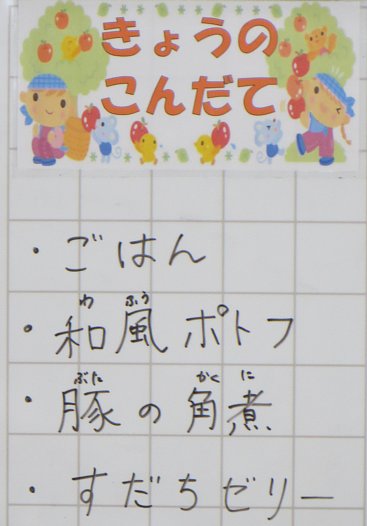 きょうの
こんだて
・ごはん
・和風ポトフ
・豚の角煮
・すだちゼリー